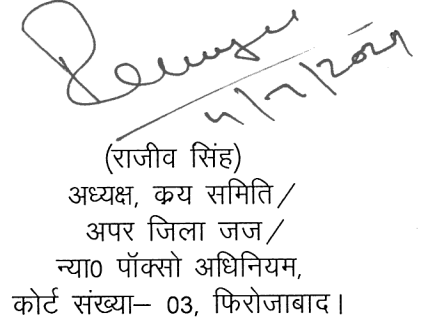 5/7/2021
(राजीव सिंह)
अध्यक्ष, क्रय समिति /
अपर जिला जज /
न्या0 पॉक्सो अधिनियम,
कोर्ट संख्या– 03, फिरोजाबाद।